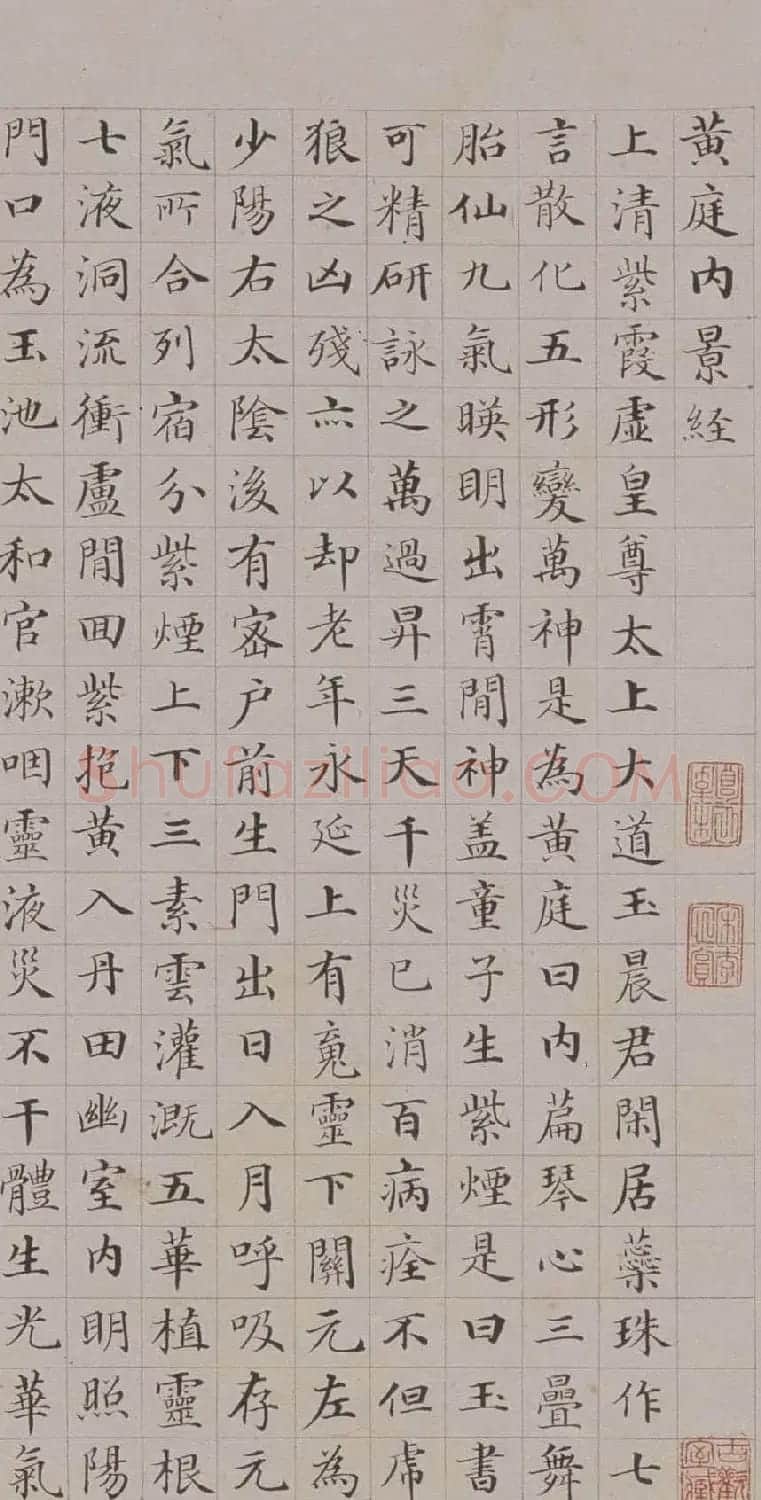 黄庭内景経
上清紫霞虛皇尊太上大道玉晨君閑居蘂珠作七
言散化五形變萬神是為黄庭曰内篇琴心三疊舞
胎仙九氣暎明出霄間神盖童子生紫煙是曰玉書
可精研詠之萬過昇三天千災已消百病痊不但虎
狼之凶殘亦以却老年永延上有䰟靈下關元左為
少陽右太陰後有密户前生門出日入月呼吸存元
氣所合列宿分紫煙上下三素雲灌溉五華植靈根
七液洞流衝盧間回紫抱黄入丹田幽室内明照陽
門口為玉池太和官漱咽靈液災不干體生光華氣
shufaziliao.COM